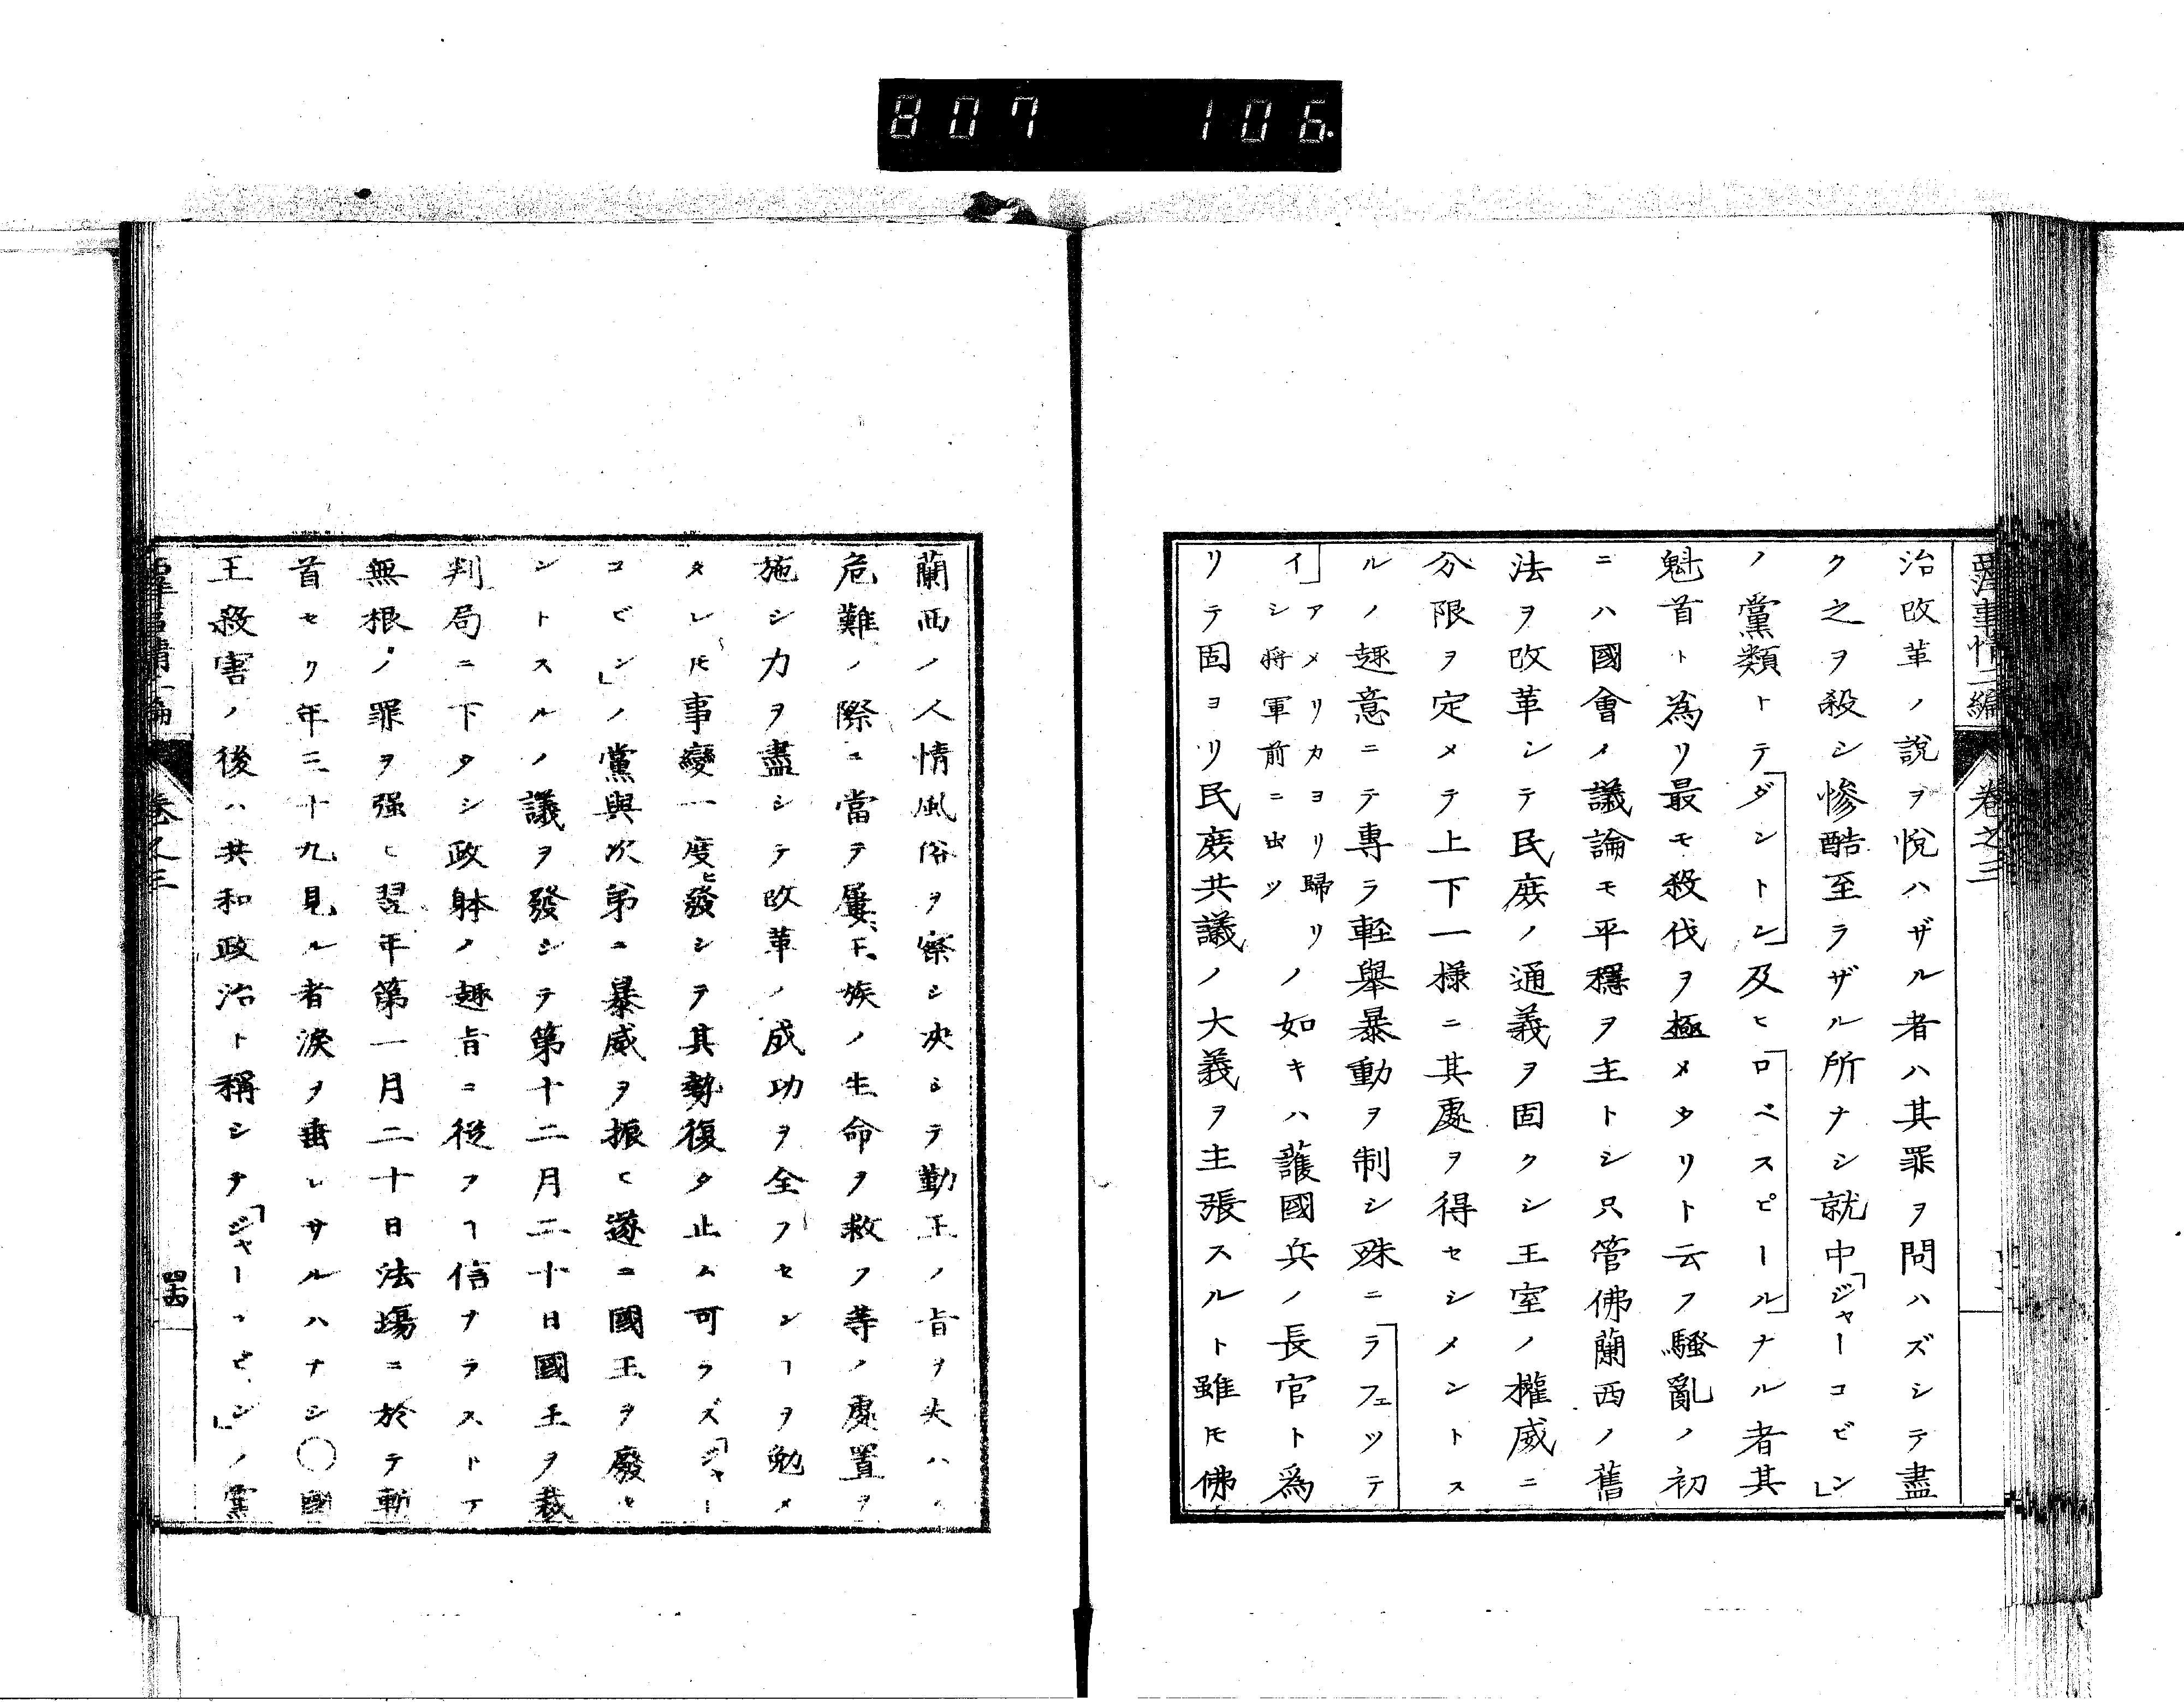 807 106.
西洋事情二編 卷之三
治改革ノ說ヲ悅ハザル者ハ其罪ヲ問ハズシテ盡
ク之ヲ殺シ慘酷至ラザル所ナシ就中「ジャーコビン」
ノ黨類トテ「ダントン」及ヒ「ロベスピール」ナル者其
魁首ト為リ最モ殺伐ヲ極メタリト云フ騷亂ノ初
ニハ國會ノ議論モ平穩ヲ主トシ只管佛蘭西ノ舊
法ヲ改革シテ民庶ノ通義ヲ固クシ王室ノ權威ニ
分限ヲ定メテ上下一樣ニ其處ヲ得セシメントス
ルノ趣意ニテ專ラ輕舉暴動ヲ制シ殊ニ「ラフェッテ
イ」アメリカヨリ歸リシ將軍前ニ出ツノ如キハ護國兵ノ長官ト為
リテ固ヨリ民庶共議ノ大義ヲ主張スルト雖𪜈佛
蘭西ノ人情風俗ヲ察シ決シテ勤王ノ旨ヲ失ハヽ
危難ノ際ニ當テ屢〻王族ノ生命ヲ救フ等ノ處置ヲ
施シ力ヲ盡シテ改革ノ成功ヲ全フセンヿヲ勉メ
タレ𪜈事變一度ヒ發シテ其勢復タ止ム可ラズ「ジャー
コビン」ノ黨與次第ニ暴威ヲ振ヒ遂ニ國王ヲ廢セ
ントスルノ議ヲ發シテ第十二月二十日國王ヲ裁
判局ニ下タシ政躰ノ趣旨ニ從フヿ信ナラストテ
無根ノ罪ヲ强ヒ翌年第一月二十日法塲ニ於テ斬
首セリ年三十九見ル者淚ヲ垂レサルハナシ〇國
王殺害ノ後ハ共和政治ト稱シテ「ジャーコビン」ノ黨
西洋事情二編 卷之三 四十四